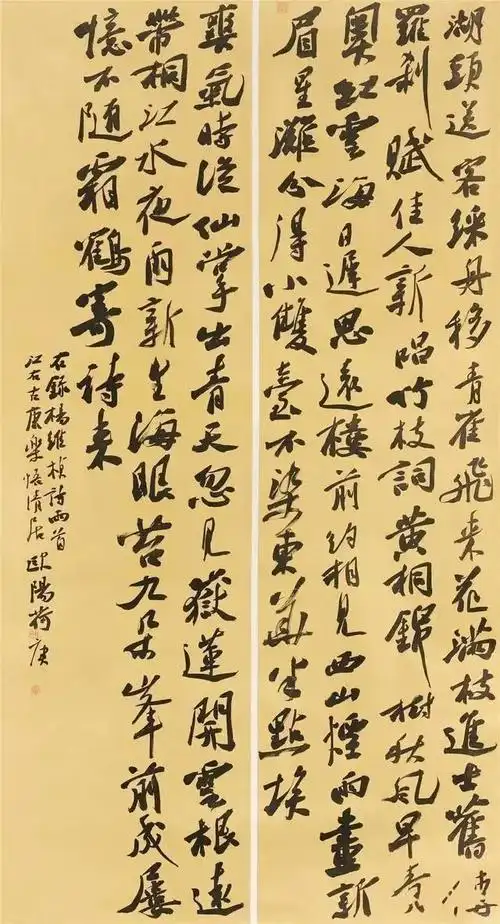 湖頭送客綵舟移青雀飛來花滿枝進士舊
羅刹賦佳人新唱竹枝詞黃桐錦樹秋風早青
奧紅雲海日遲思遠樓前約相見西山煙雨畫新
眉星灘分得小雙臺不染東華半點埃
爽氣時從仙掌出青天忽見嶽蓮開雲根遠
帶桐江水夜雨新生海眼苔九朵峯前成屢
憶不随霜鶴寄詩來
右錄楊維楨詩兩首
江右古康樂悟清居歐陽荷庚